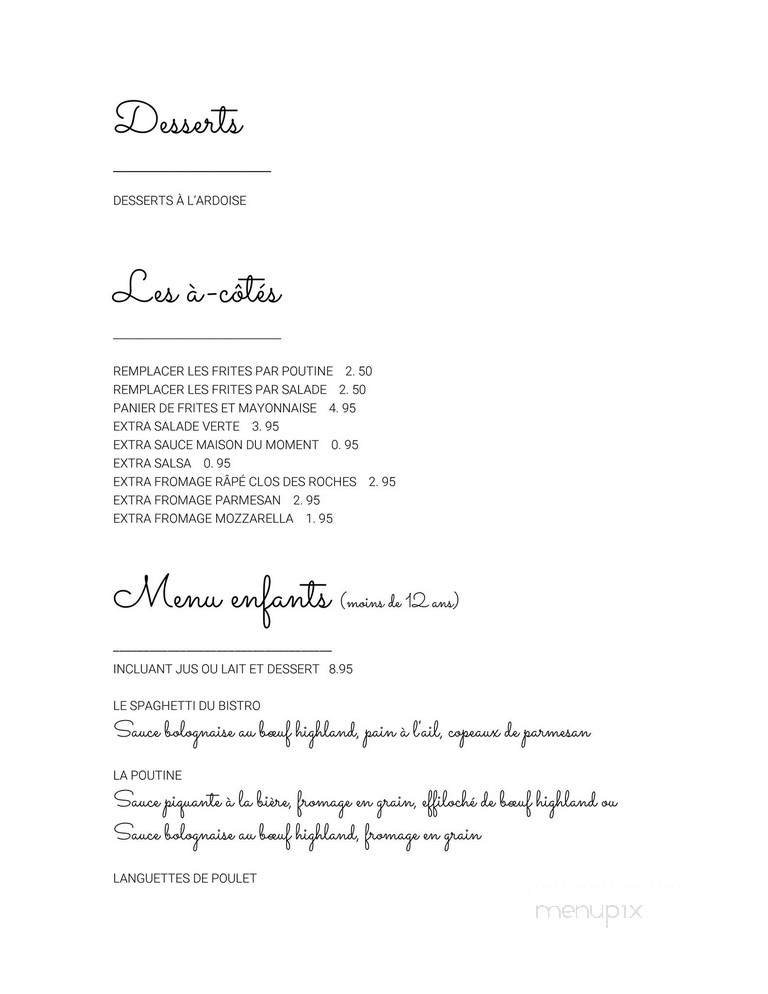 Desserts
DESSERTS À L'ARDOISE
Les à-côtés
REMPLACER LES FRITES PAR POUTINE 2. 50
REMPLACER LES FRITES PAR SALADE 2. 50
PANIER DE FRITES ET MAYONNAISE 4. 95
EXTRA SALADE VERTE 3. 95
EXTRA SAUCE MAISON DU MOMENT 0. 95
EXTRA SALSA 0. 95
EXTRA FROMAGE RÂPÉ CLOS DES ROCHES 2. 95
EXTRA FROMAGE PARMESAN 2. 95
EXTRA FROMAGE MOZZARELLA 1. 95
Menu enfants (moins de 12 ans)
INCLUANT JUS OU LAIT ET DESSERT 8.95
LE SPAGHETTI DU BISTRO
Sauce bolognaise au bœuf highland, pain à l'ail, copeaux de parmesan
LA POUTINE
Sauce piquante à la bière, fromage en grain, effiloché de bœuf highland ou
Sauce bolognaise au bœuf highland, fromage en grain
LANGUETTES DE POULET
menupix